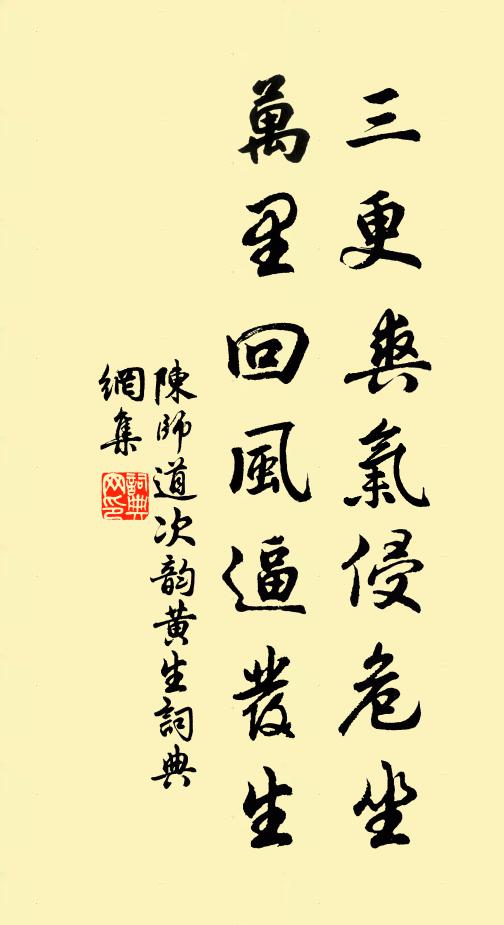 三更爽氣侵危坐
萬里回風逼發生
陳師道次韵黄生詞典
網集
詞典
网印